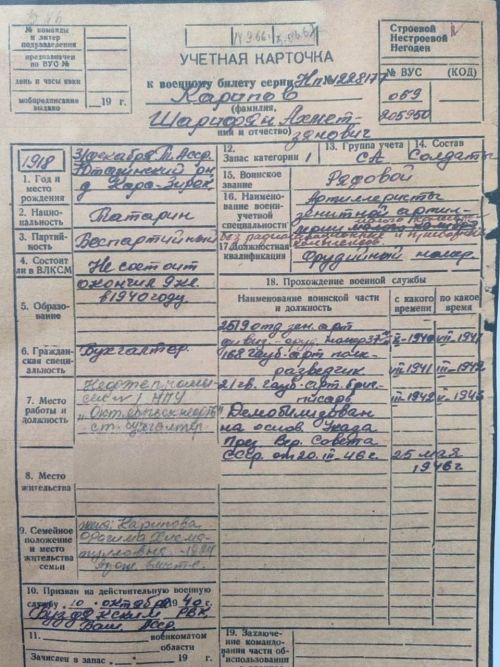 № команды
и литер
подразделения
предназначен
по ВУС №
день и часы явки
мобпредписание
выдано 19 г.
Строевой
Нестроевой
Негоден
УЧЕТНАЯ КАРТОЧКА
к военному билету серии НП № 1228177
№ ВУС (КОД)
Карипов
(фамилия,
059
205950
Шарифян Ахмет-
имя и отчество)
зянович
1918
1. Год и место
рождения
31 декабря Т. Асср.
д. Кара-
12.
Запас категории 1
13. Группа учета
СА
14. Состав
Солдаты
15. Воинское
звание
Рядовой
2. Нацио-
нальность
Татарин
16. Наименова-
ние военно-
учетной
специальности
Артиллеристы
зенитной артил-
лерии
без радио
3. Партий-
ность
Беспартийный
17. Должностная
квалификация
Орудийный номер.
4. Состоит
ли в ВЛКСМ
Не состоит
5. Образо-
вание
окончил 9 кл.
в 1940 году.
18. Прохождение военной службы
Наименование воинской части
и должность
с какого
времени
по какое
время
2519 отд. зен. арт
номер 37
X-1940
VII-1941
6. Гражданская
специ-
альность
Бухгалтер.
168 гауб. арт. полк
разведчик
VII 1941
VII-1942
7. Место
работы и
должность
НПУ
„Октябрьскнефть"
ст. бухгалтер.
21 гв. гауб. арт. бриг.
писарь
VII-1942
V-1946
Демобилизован
на основ. Указа
През. Вер. Совета
СССР от 20. III. 46 г.
25 мая
1946 г.
8. Место
жительства
9. Семейное
положение
и место
жительства
семьи
жена: Карипова
прож. вместе.
10. Призван на действительную военную
службу 10 октября 1940 г.
РВК
Баш. Асср.
11. военкоматом
области
Зачислен в запас 19 г.
19. Заключение
командования части об
использовании